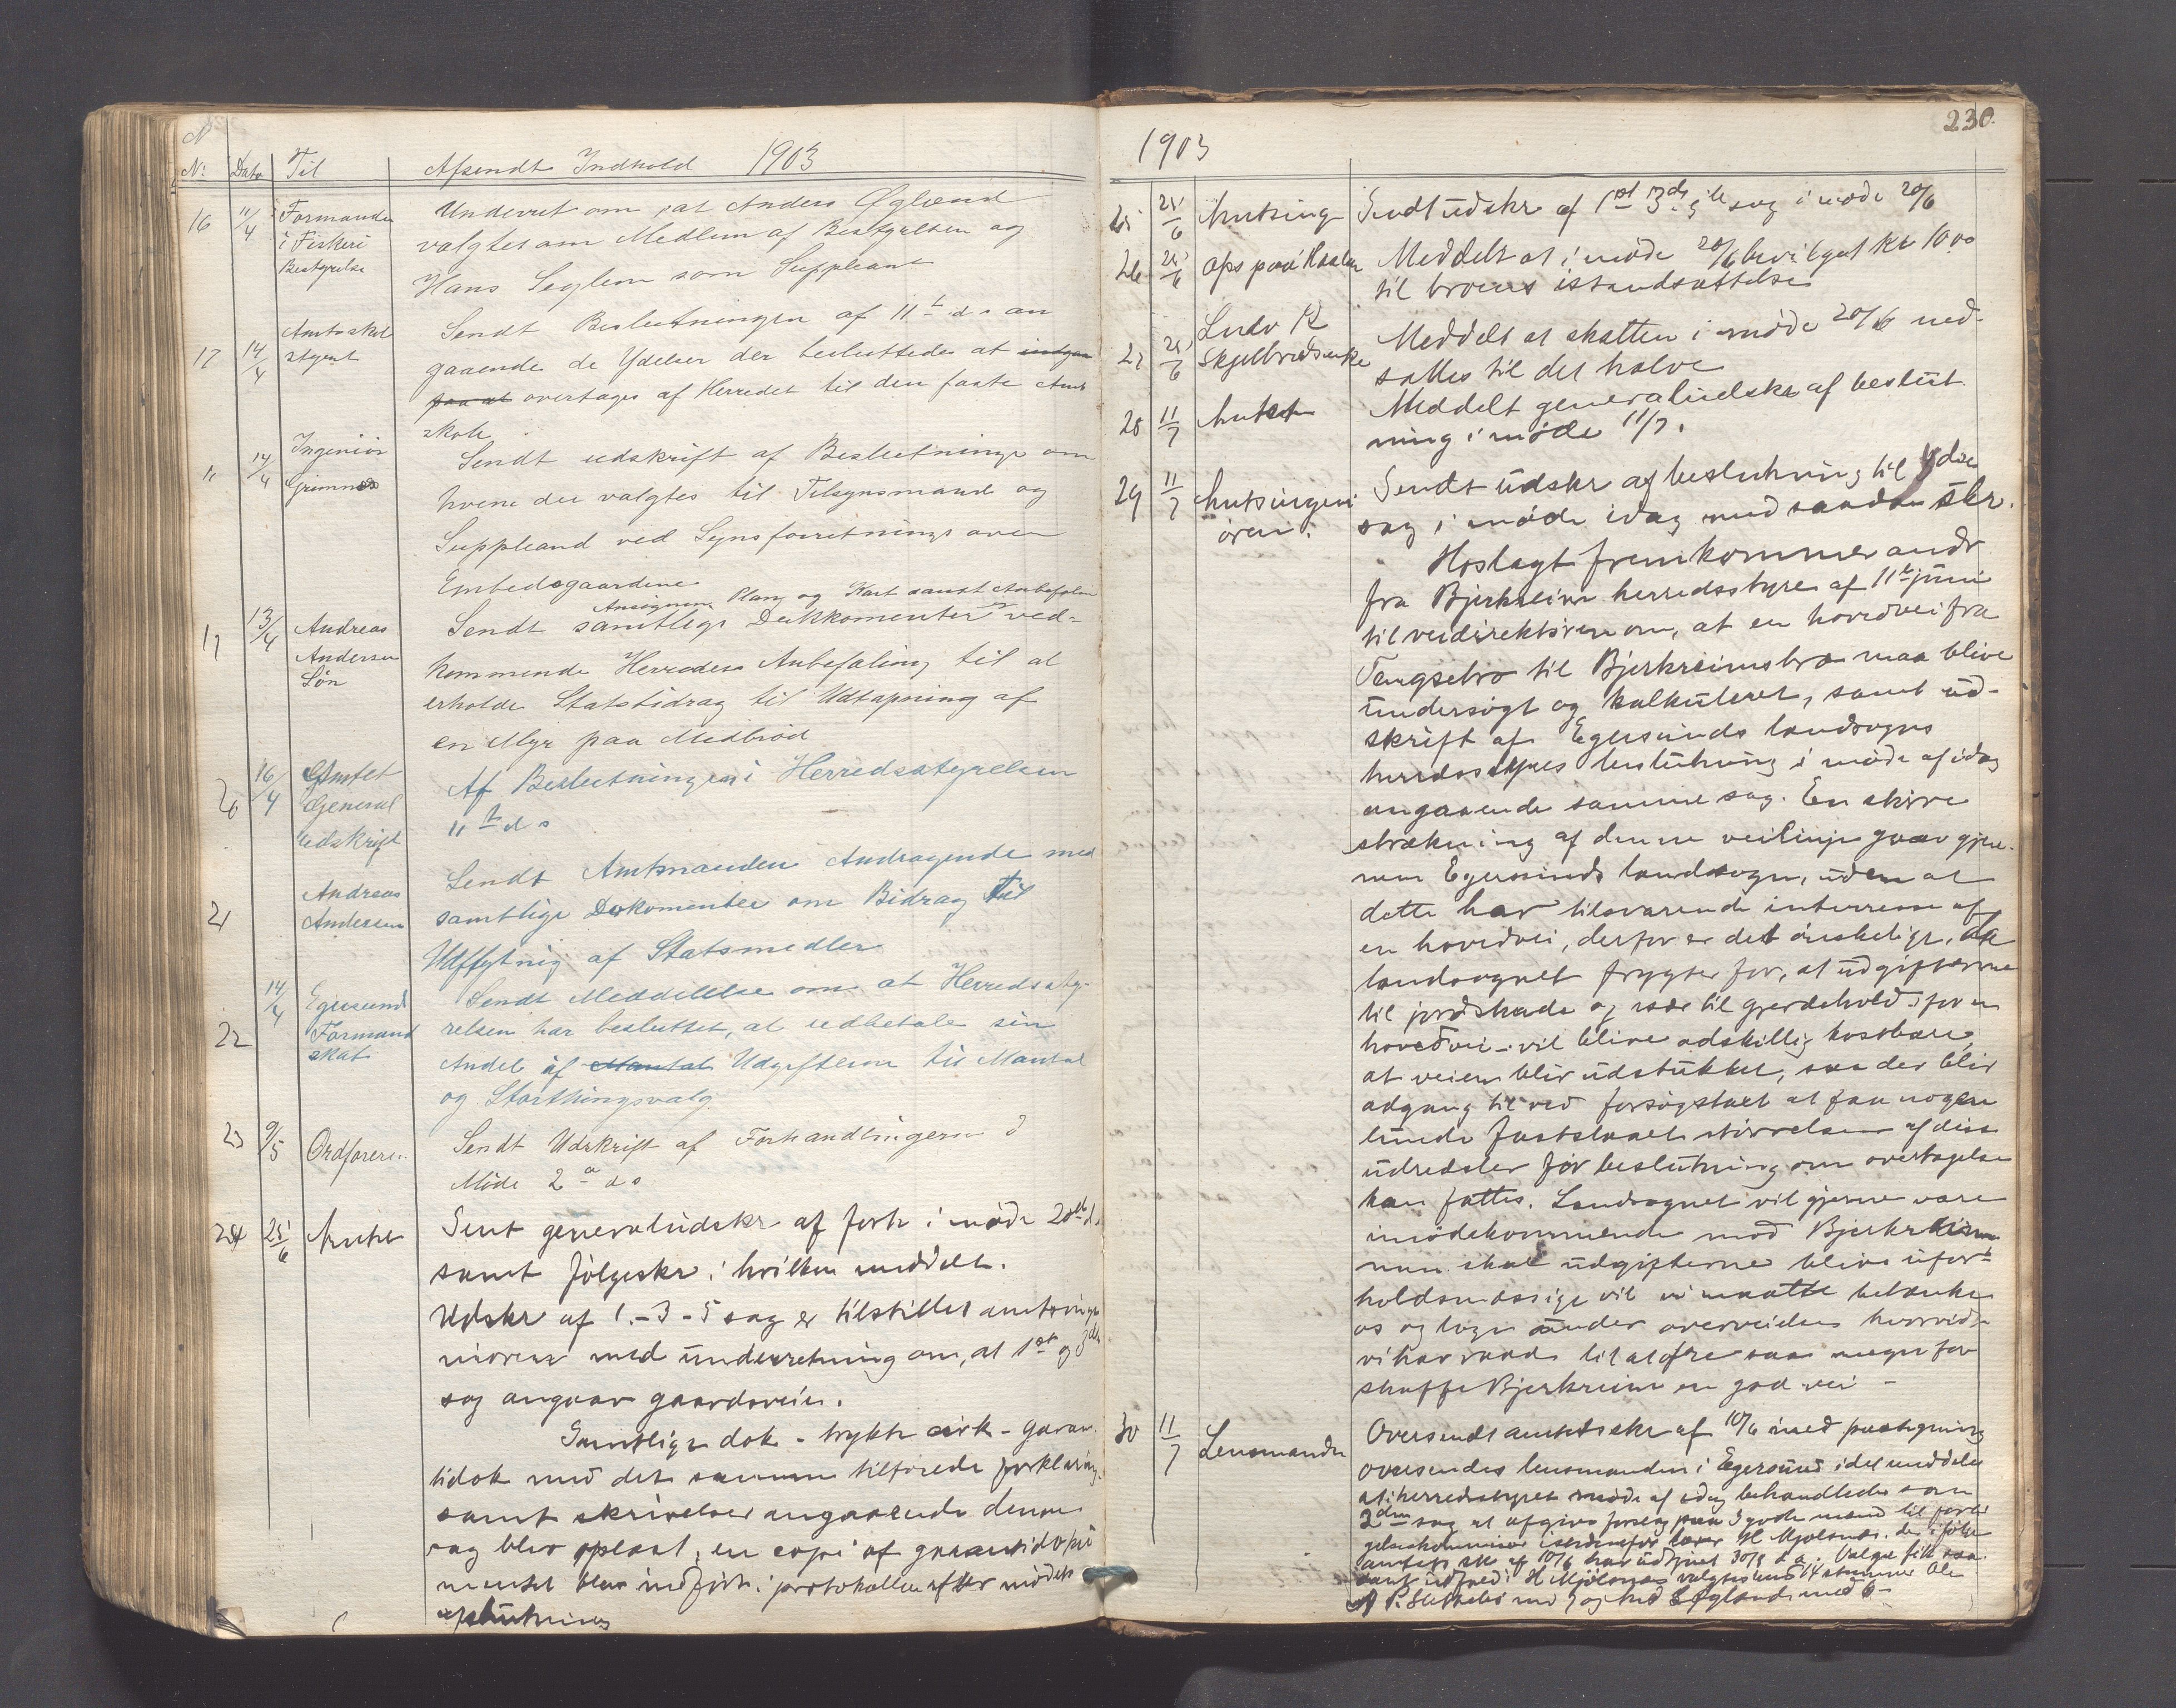 No Dato Til Afsendt Indhold 1903
16 11/4 Formanden i Fiskeri Bestyrelse
Underret om, at Anders Øglænd
valgtes om Medlem af Bestyrelsen og
Hans Seglem som Suppleant
17 14/4 Amtsskole styret
Sendt Beslutningen af 11te ds an
gaaende de Ydelser der besluttedes at
paa at overtages af Herredet til den faste Amts
skole
14/4 Ingeniør Grimnes
Sendt udskrift af Beslutninge om
hvem der valgtes til Tilsynsmand og
Suppleand ved Synsforretninge over
Embedsgaardene
Ansøgnen Plan og Kart samt Anbefalin
13/4 Andreas Andersen Løn
Sendt samtlige Dokkomenter ved-
kommende Herredets Anbefaling til at
erholde Statsbidrag til Udtapning af
en Myr paa Midbrød
20 16/4 Amtet General udskrift
Af Beslutningen i Herredsstyrelsen
11te ds
21 Andreas Andersen
Sendt Amtmanden Andragende med
samtlige Dokomenter om Bidrag til
af Statsmedler
22 14/4 Egersund Formand skab
Sendt Meddelelse om at Herredssty-
relsen har besluttet, at udbetale sin
Andel af Mantal Udgifterne til Mantal
og Storthingsvalg
23 9/5 Ordføreren
Sendt Udskrift af Forhandlingerne i
Møde 2 ds
24 25/6 Amtet
Sent generaludskr af forh i møde 20de ds
samt følgeskr. i hvilken meddelt.
Udskr af 1.-3-5 sag er tilstillet amtsinge
niøren med underretning om, at 1st og 3die
sag angaar gaardsveie.
Samtlige dok - trykte cirk - garan
tidok med det samme tilførede forklaring
samt skrivelser angaaende denne
sag blev oplæst, en copi af garantidoku
mentet blev indført i protokollen efter mødets
afslutning
1903
230.
25 25/6 Amtsing
Sendt udskr af 1st 3die 5te sag i møde 20/6
26 25/6 ops paa
Meddelt at i møde 20/6 bevilget kr 10.00
til broens istandsættelse
27 25/6 Ludv R Skjelbredsenke
Meddelt at skatten i møde 20/6 ned-
sattes til det halve
28 11/7 Amtet
Meddelt generaludskr af beslut
ning i møde 11/7.
29 11/7 Amtsingeni øren.
Sendt udskr af beslutning til
sag i møde idag med saadan skr.
Hoslagt fremkommer andr
fra Bjerkreim herredsstyre af 11te juni
til veidirektøren om, at en hovedvei fra
Tengsebro til Bjerkreimsbro maa blive
undersøgt og kalkuleret, samt ud-
skrift af Egersunds landsogns
herredsstyres beslutning i møde af idag
angaaende samme sag. En større
strækning af denne veilinje gaar gjen-
nem Egersunds landsogn, uden at
dette har tilsvarende interresse af
en hovedvei, derfor er det ønskelige, da
landsognet frygter for, at udgifterne
til jordskade og især til gjerdehold for en
hovedvei - vil blive adskillig kostbare,
at veien blir udstukket, saa der blir
adgang til ved forsøgstaxt at faa nogen-
lunde fastslaaet størrelsen af disse
udredsler før beslutning om overtagelse
kan fattes. Landsognet vil gjerne være
imødekommende mod Bjerkreim
men skal udgifterne blive ufor-
holdsmæssige vil vi maatte betænke
os og tage under overveielse hvorvidt
vi har raad til at ofre saa meget for
skaffe Bjerkreim en god vei -
30 11/7 Lensmanden
Oversendt amtets skr af 10/6 med paategning
oversendes lensmanden i Egersund idet meddeles
at i herredsstyret møde af idag behandledes som
2den sag at afgive forslag paa 3 gode mænd til forli
gelseskommisær istedenfor H Mjølsnes, der ifølge
amtets skr af 10/6 har udtjent 30/9 d a. Valget fik saa
H Mjølsnes valgtes med 14 stemmer Ole
med 7 og S Øgland med 6 -